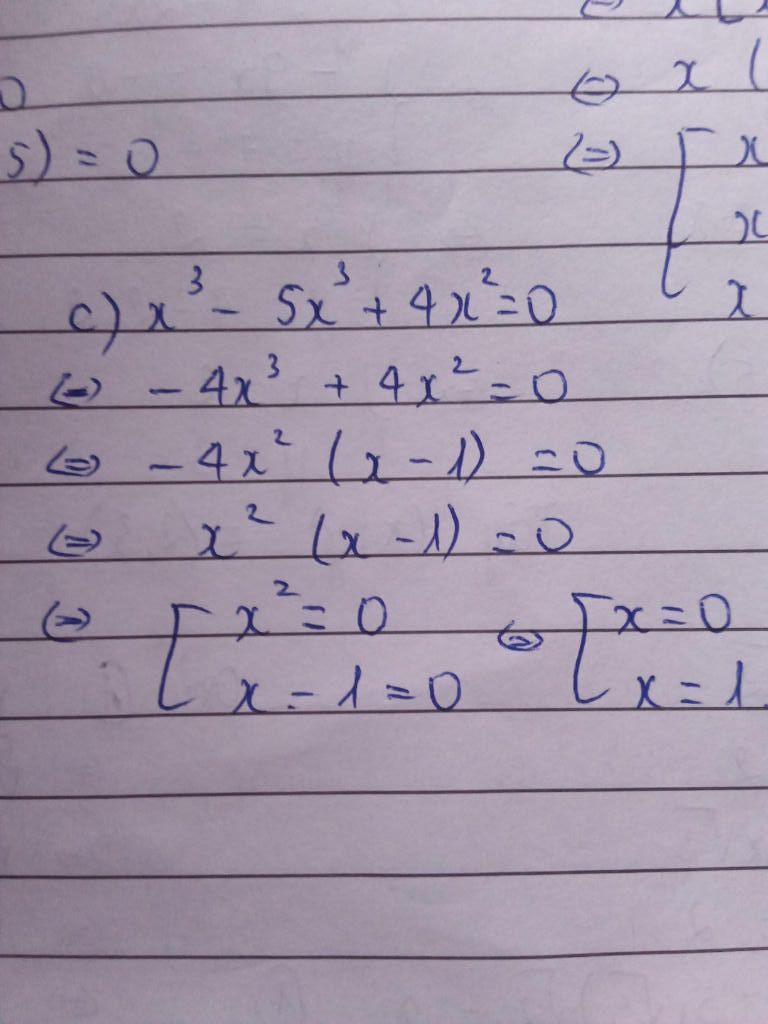 ⇔ x (
0
5) = 0
⇔ [ x
x
x
c) x³ - 5x³ + 4x² = 0
⇔ - 4x³ + 4x² = 0
⇔ - 4x² (x - 1) = 0
⇔ x² (x - 1) = 0
⇔ [ x² = 0 ⇔ [ x = 0
x - 1 = 0 x = 1